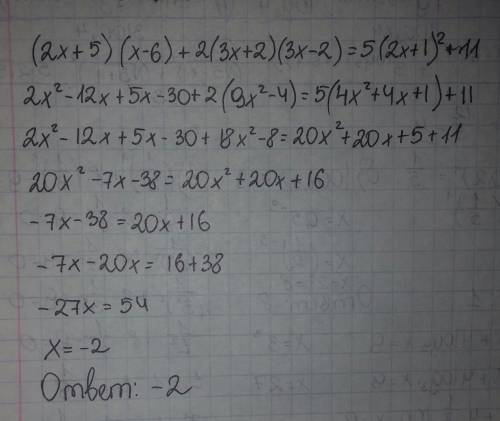 (2x+5)(x-6)+2(3x+2)(3x-2)=5(2x+1)²+11
2x²-12x+5x-30+2(9x²-4)=5(4x²+4x+1)+11
2x²-12x+5x-30+18x²-8=20x²+20x+5+11
20x²-7x-38=20x²+20x+16
-7x-38=20x+16
-7x-20x=16+38
-27x=54
x=-2
Ответ: -2